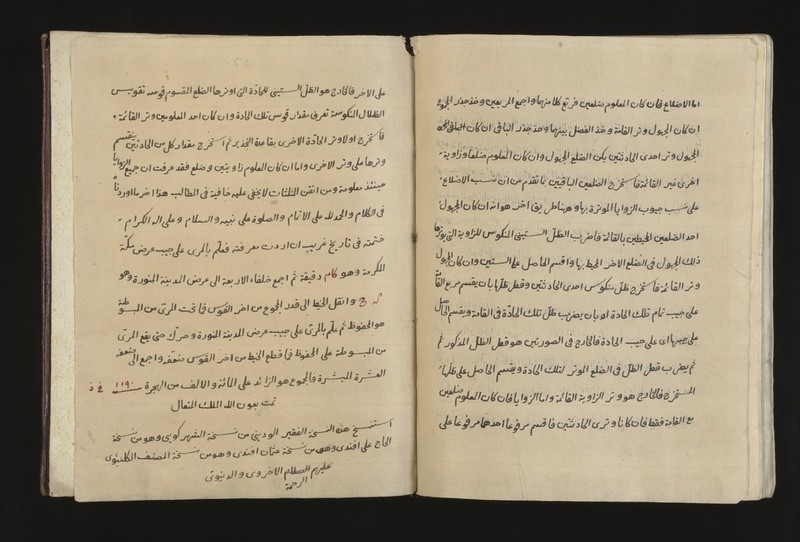 اما الاضلاع فان كان المعلوم ضلعين فربع كلا منهما واجمع المربعين وخذ جذر
ان كان المجهول وتر القائمة وخذ الفضل بينهما وخذ جذر الباقى ان كان
المجهول وتر احدى الحادتين يكن الضلع المجهول وان كان المعلوم ضلعا وزاوية
اخرى غير القائمة فاستخرج الضلعين الباقيين بما تقدم من ان نسب الاضلاع
على نسب جيوب الزوايا الموترة بها وههنا طريق اخر هو انه ان كان المجهول
احد الضلعين المحيطين بالقائمة فاضرب الظل الستينى المنكوس للزاوية التى يوترها
ذلك المجهول فى الضلع الاخر المحيط بها واقسم الحاصل على الستين وان كان المجهول
وتر القائمة فاستخرج ظل منكوس احدى الحادتين وقطر ظلها بان يقسم مربع
على جيب تمام تلك الحادة او بان يضرب ظل تلك الحادة فى القامة ويقسم الحاصل
على جيبها اى على جيب الحادة فالخارج فى الصورتين هو قطر الظل المذكور ثم
يضرب قطر الظل فى الضلع الموتر لتلك الحادة ويقسم الحاصل على ظلها
المستخرج فالخارج هو وتر الزاوية القائمة واما الزوايا فان كان المعلوم ضلعين
مع القائمة فقط فان كانا وترى الحادتين فاقسم مرفوعا احدهما مرفوعا على
على الاخر فالخارج هو الظل الستينى للحادة التى اوترها الضلع المقسوم قوسه تقويس
الظلال المنكوسة تعرف مقدار قوس تلك الحادة وان كان احد المعلومين وتر القائمة
فاستخرج اولا وتر الحادة الاخرى بقاعدة التجذير ثم استخرج مقدار كل من الحادتين بتقسيم
وترها على وتر الاخرى واما ان كان المعلوم زاويتين وضلع فقد عرفت ان جميع الزوايا
حينئذ معلومة ومن اتقن المثلثات لا يخفى عليه خافية فى المطالب هذا اخر ما اوردنا
فى الكلام والحمد لله على الاتمام والصلوة على نبيه والسلام وعلى اله الكرام
ختمته فى تاريخ غريب ان اردت معرفته فعلم بالمرى على جيب عرض مكة
المكرمة وهو كام دقيقة ثم اجمع خلفاء الاربعة الى عرض المدينة المنورة وهو
كه ح وانقل الخيط الى قدر المجموع من اخر القوس فما تحت المرى من المبسوطة
هو المحفوظ ثم علم بالمرى على جيب عرض المدينة المنورة وحرك حتى يقع المرى
من المبسوطة على المحفوظ فما قطع الخيط من اخر القوس ضعفه واجمع الى ضعفه
العشرة المبشرة فالمجموع هو الزائد على المائة والالف من الهجرة ١١٩٠
تمت بعون الله الملك المتعال
استنسخ هذه النسخة الفقير الودينى من نسخة الشهركويى وهو من نسخة
الحاج على افندى وهو من نسخة عثمان افندى وهو من نسخة المصنف الكلنبوى
عليهم السلام الاخروى والدنيوى
الرحمة